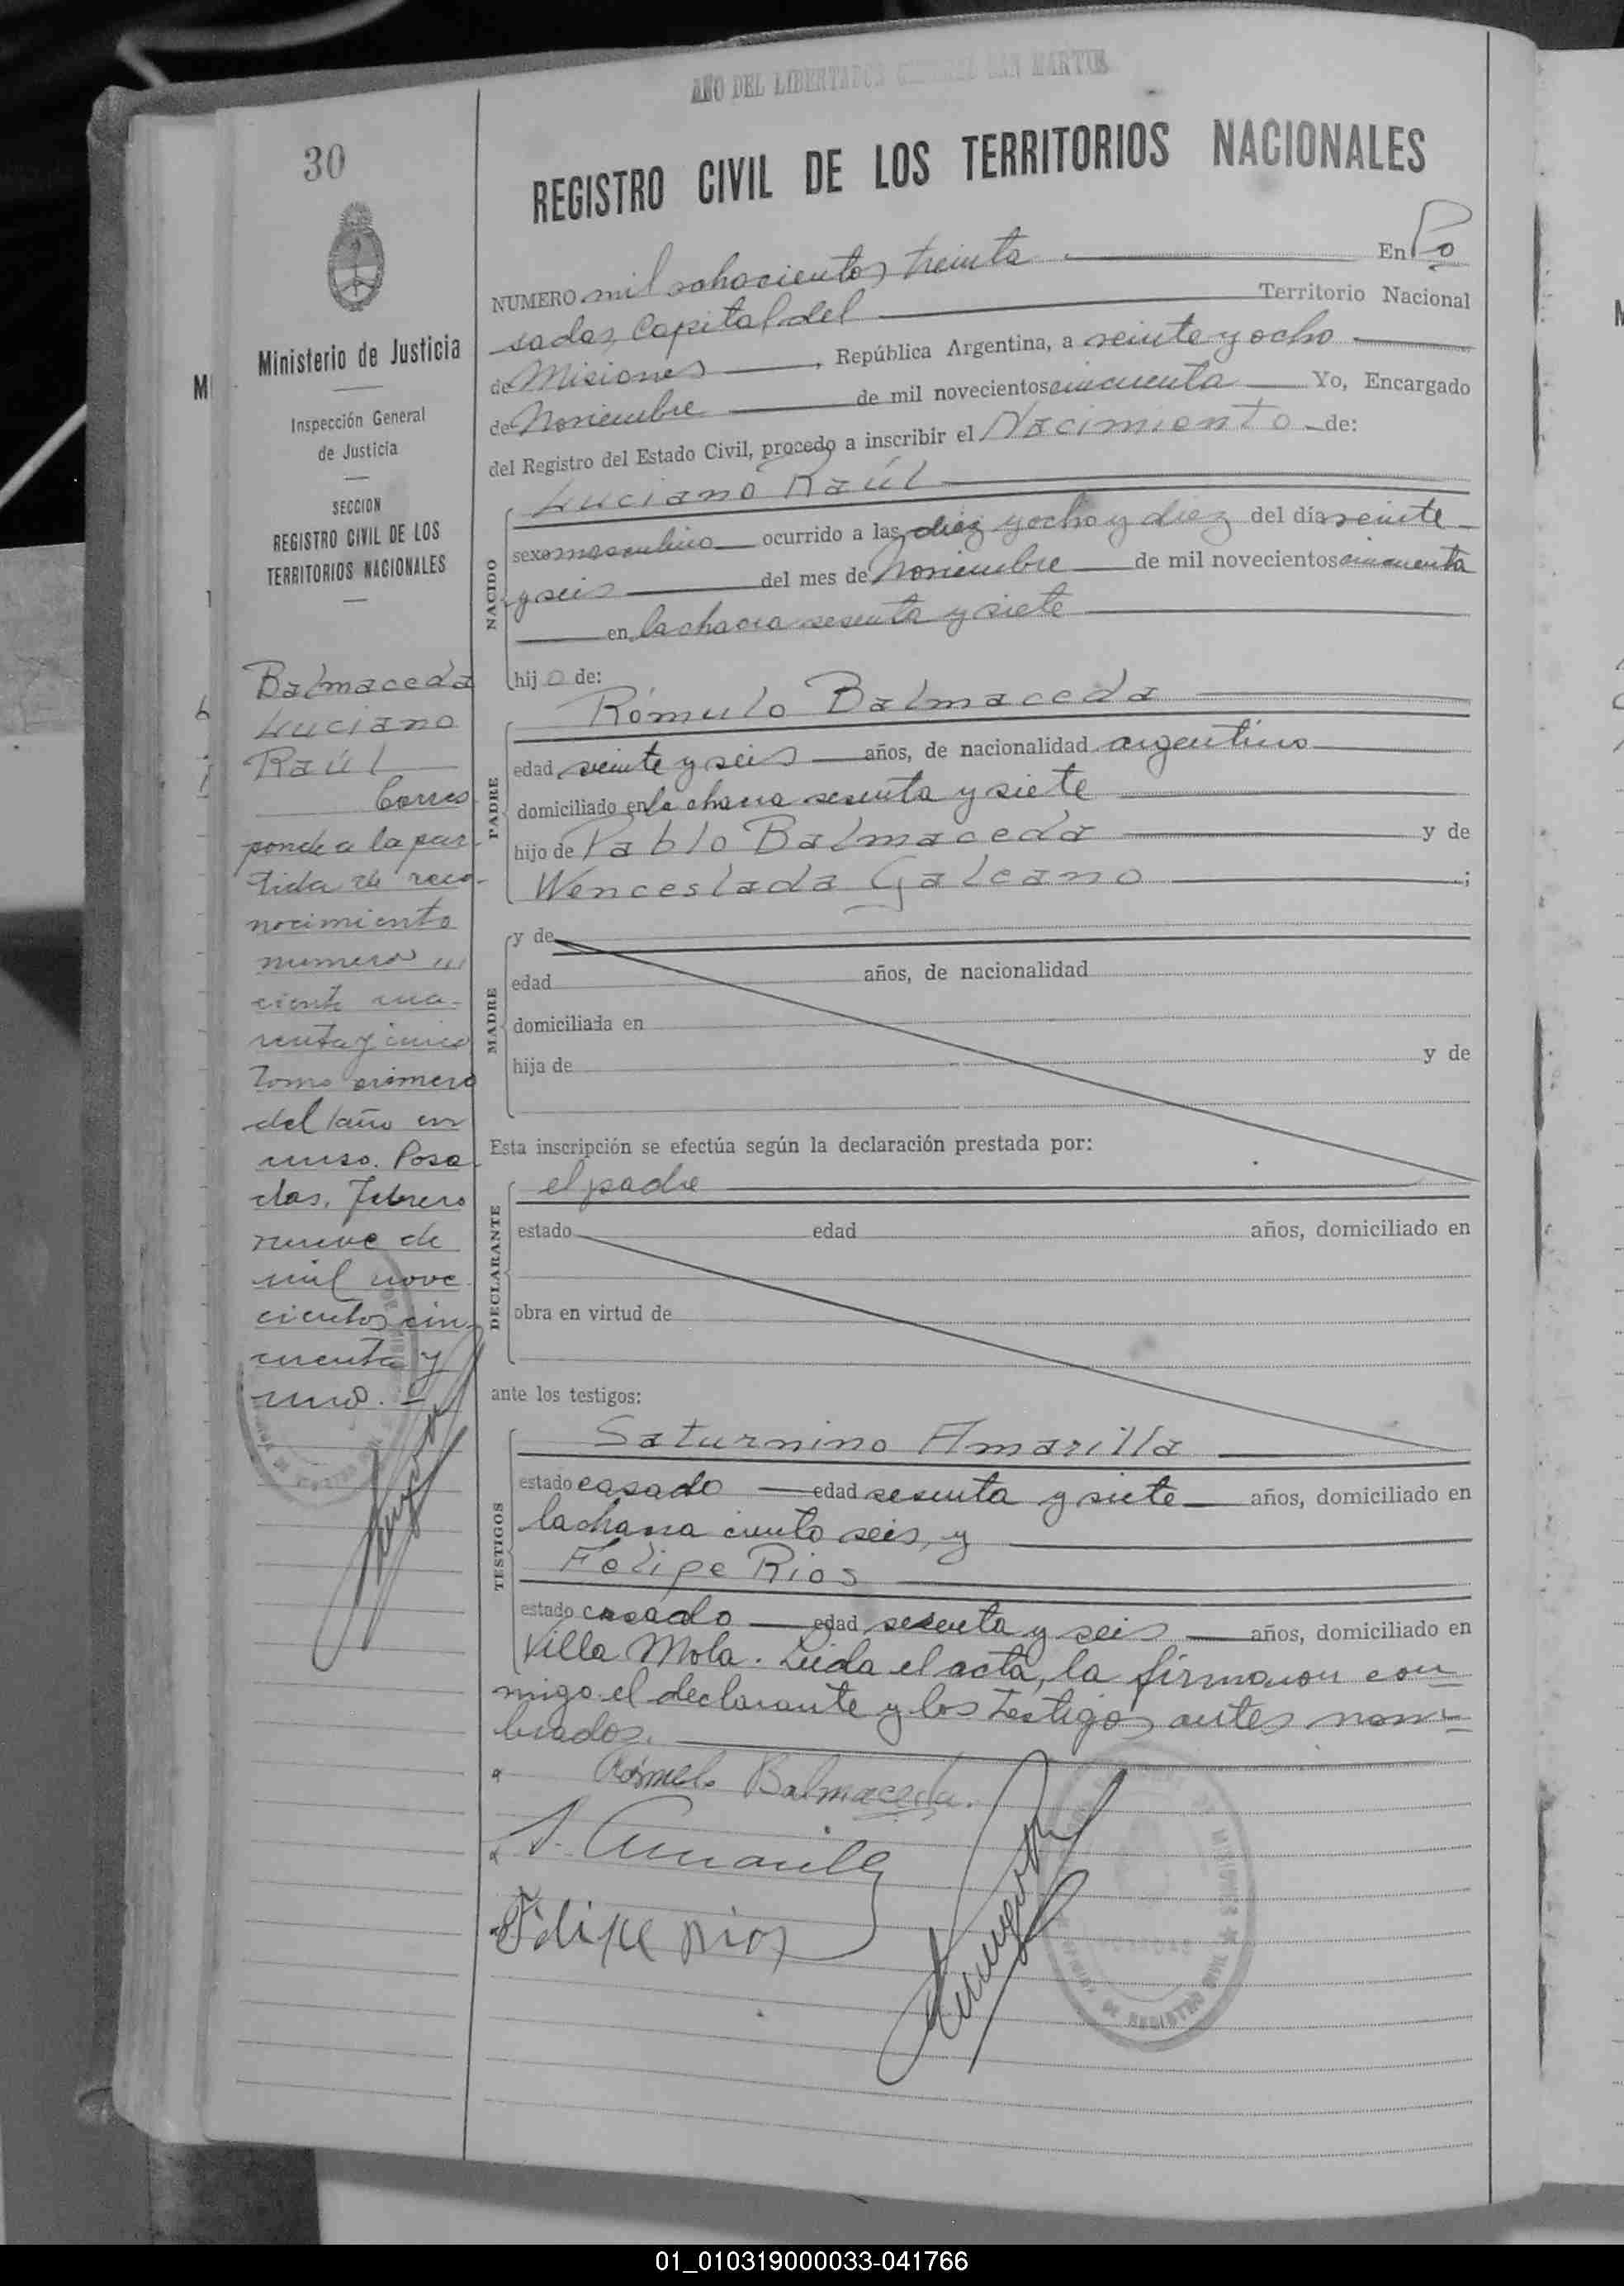 AÑO DEL LIBERTADOR GENERAL SAN MARTIN
30
REGISTRO CIVIL DE LOS TERRITORIOS NACIONALES
Ministerio de Justicia
Inspección General
de Justicia
SECCION
REGISTRO CIVIL DE LOS
TERRITORIOS NACIONALES
Balmaceda
Luciano
Raúl
Corres
ponde a la par-
tida de reco-
nocimiento
numero
ciento cua-
renta y cinco
Tomo primero
del año en
curso. Posa
das, Febrero
nueve de
mil nove
cientos cin-
cuenta y
uno.-
NUMERO mil ochocientos treinta En Po
sadas, Capital del Territorio Nacional
de Misiones, República Argentina, a veinte y ocho
de Noviembre de mil novecientos cincuenta Yo, Encargado
del Registro del Estado Civil, procedo a inscribir el Nacimiento de:
NACIDO
Luciano Raúl
sexo masculino ocurrido a las diez y ocho y diez del día veinte
y seis del mes de Noviembre de mil novecientos cincuenta
en la chacra sesenta y siete
hijo de:
PADRE
Rómulo Balmaceda
edad veinte y seis años, de nacionalidad argentino
domiciliado en la chacra sesenta y siete
hijo de Pablo Balmaceda y de
Wenceslada Galeano;
MADRE
y de
edad años, de nacionalidad
domiciliada en
hija de y de
Esta inscripción se efectúa según la declaración prestada por:
DECLARANTE
el padre
estado edad años, domiciliado en
obra en virtud de
ante los testigos:
TESTIGOS
Saturnino Amarilla
estado casado edad sesenta y siete años, domiciliado en
la chacra ciento seis, y
Felipe Rios
estado casado edad sesenta y seis años, domiciliado en
Villa Mola. Leida el acta, la firmaron con
migo el declarante y los testigos antes nom-
brados.
Rómulo Balmaceda.
S. Amarilla
Felipe Rios
01_010319000033-041766